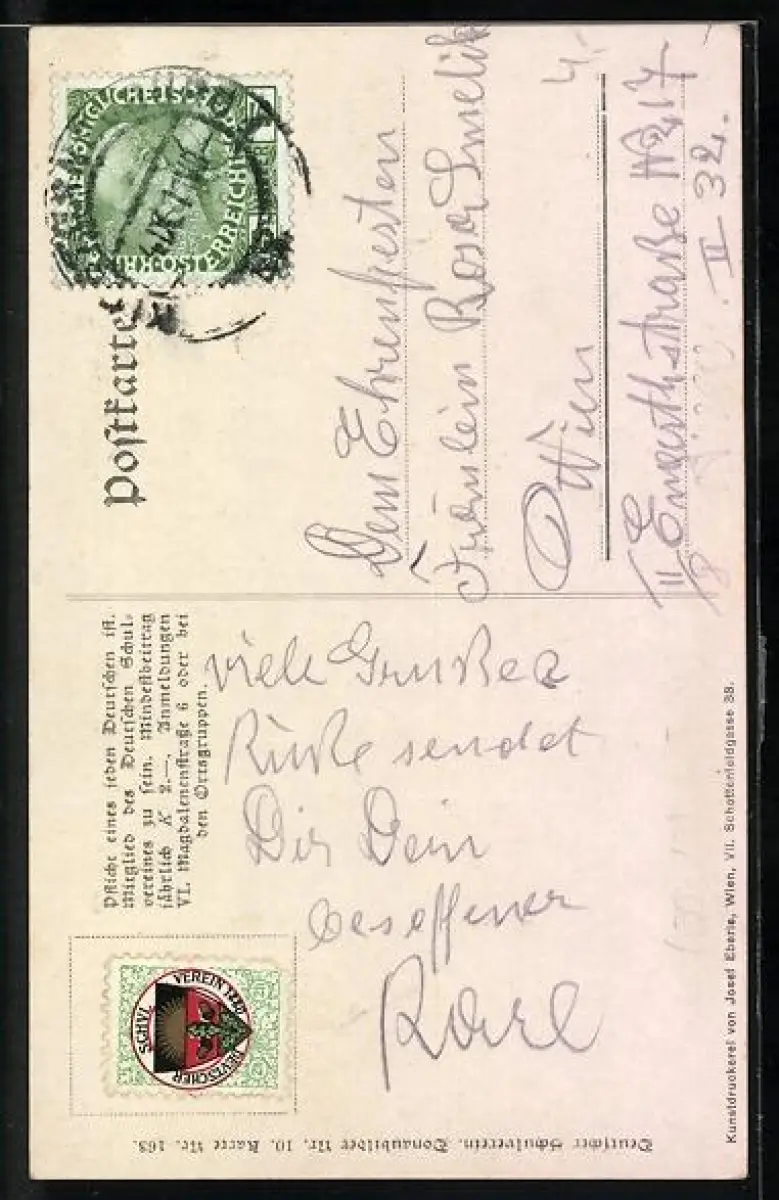 Deutscher Schulverein. Donaubilder Nr. 10. Karte Nr. 163.
DEUTSCHER SCHVLVEREIN 1880
Pflicht eines jeden Deutschen ist,
Mitglied des Deutschen Schul-
vereines zu sein. Mindestbeitrag
jährlich K 2.—. Anmeldungen
VI. Magdalenenstraße 6 oder bei
den Ortsgruppen.
viele Grüße &
Küße sendet
Dir Dein
besoffener
Karl
Postkarte
KÖNIGLICHE ÖSTERREICHISCHE
Dem Ehrenfesten
Fräulein Rosa Smelik
4.
Wien
II/8 Engerthstraße No 217
II 32.
Kunstdruckerei von Josef Eberle, Wien, VII. Schottenfeldgasse 38.